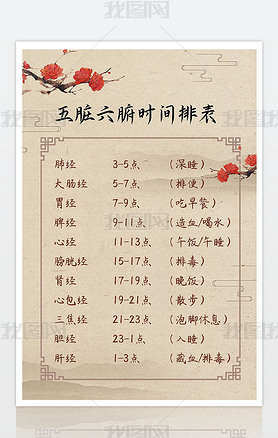 五脏六腑时间排表
肺经 3-5点 （深睡）
大肠经 5-7点 （排便）
胃经 7-9点 （吃早餐）
脾经 9-11点 （造血/喝水）
心经 11-13点 （午饭/午睡）
膀胱经 15-17点 （排毒）
肾经 17-19点 （晚饭）
心包经 19-21点 （散步）
三焦经 21-23点 （泡脚休息）
胆经 23-1点 （入睡）
肝经 1-3点 （藏血/排毒）